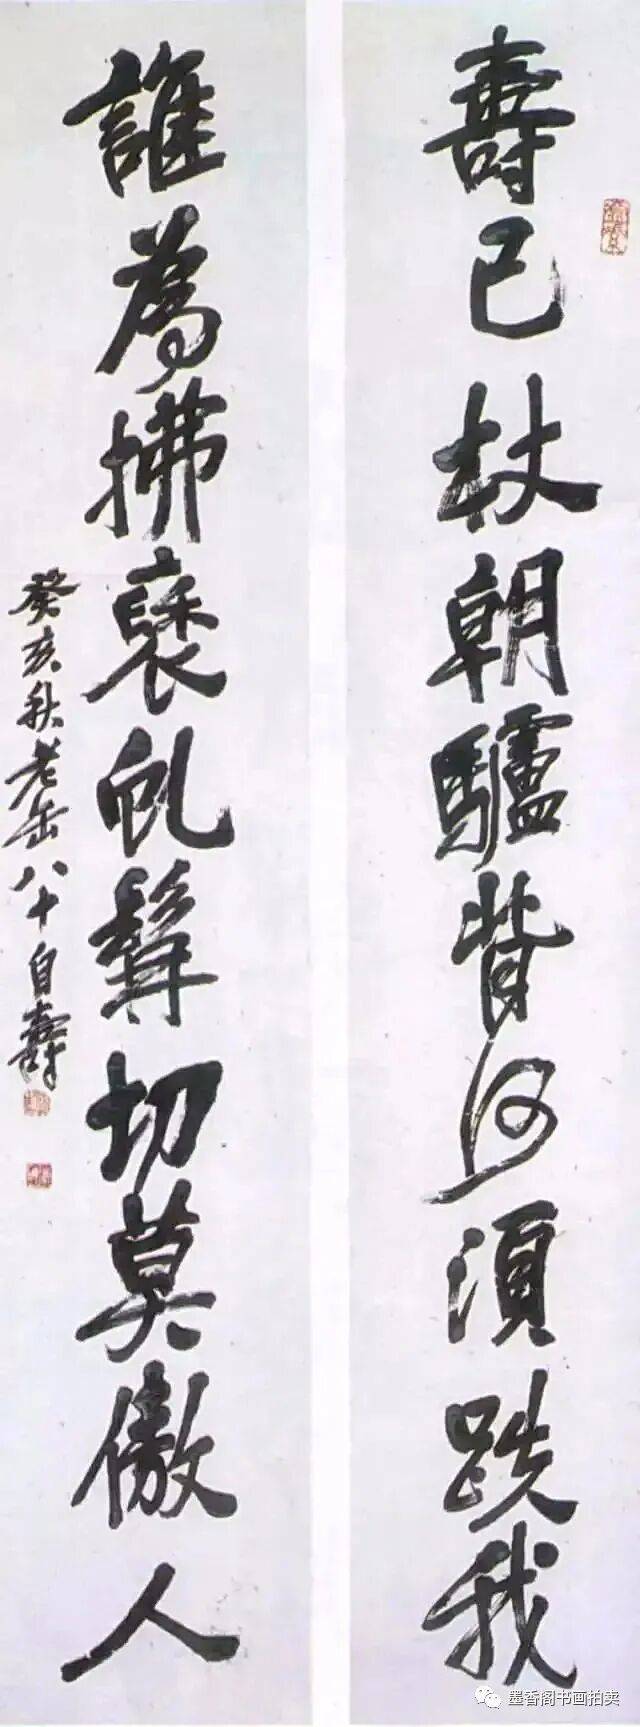 壽已杖朝驢背何須跌我
誰為拂褎虬髯切莫傲人
癸亥秋老缶八十自壽
墨香阁书画拍卖